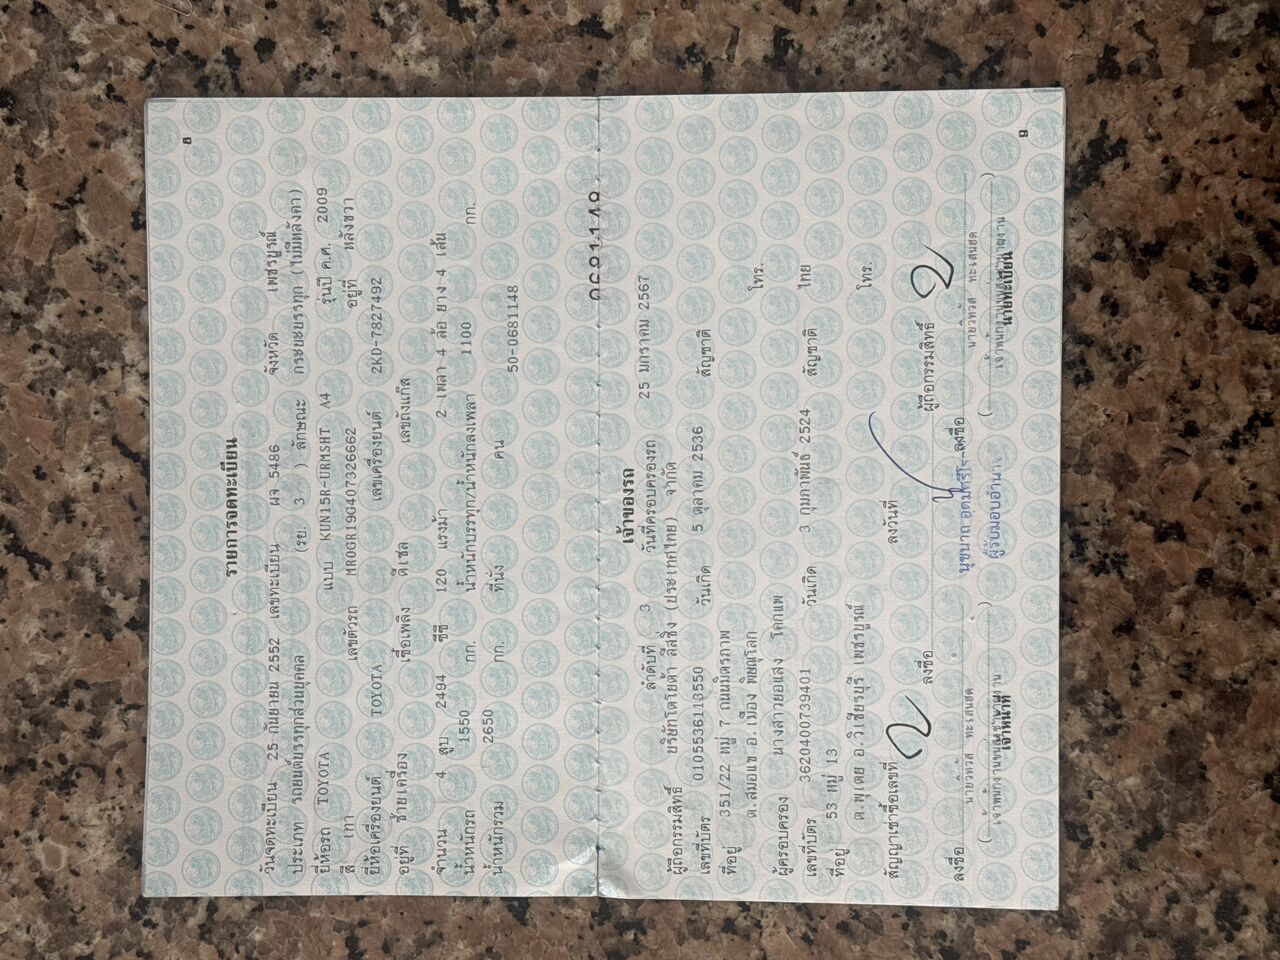 8
รายการจดทะเบียน
วันจดทะเบียน 25 กันยายน 2552 เลขทะเบียน ผจ 5486 จังหวัด เพชรบูรณ์
ประเภท รถยนต์บรรทุกส่วนบุคคล (รย. 3 ) ลักษณะ กระบะบรรทุก (ไม่มีหลังคา)
ยี่ห้อรถ TOYOTA แบบ KUN15R-URMSHT A4 รุ่นปี ค.ศ. 2009
สี เทา เลขตัวรถ MR0GR19G407326662 อยู่ที่ หลังขวา
ยี่ห้อเครื่องยนต์ TOYOTA เลขเครื่องยนต์ 2KD-7827492
อยู่ที่ ซ้ายเครื่อง เชื้อเพลิง ดีเซล เลขถังแก๊ส
จำนวน 4 สูบ 2494 ซีซี 120 แรงม้า 2 เพลา 4 ล้อ ยาง 4 เส้น
น้ำหนักรถ 1550 กก. น้ำหนักบรรทุก/น้ำหนักลงเพลา 1100 กก.
น้ำหนักรวม 2650 กก. ที่นั่ง คน
50-0681148
เจ้าของรถ
ลำดับที่ 3 วันที่ครอบครองรถ 25 มกราคม 2567
ผู้ถือกรรมสิทธิ์ บริษัทโตโยต้า ลีสซิ่ง (ประเทศไทย) จำกัด
เลขที่บัตร 0105536113550 วันเกิด 5 ตุลาคม 2536 สัญชาติ
ที่อยู่ 351/22 หมู่ 7 ถนนมิตรภาพ
ต.สมอแข อ.เมือง พิษณุโลก โทร.
ผู้ครอบครอง นางสาวยอแสง โคกแพ
เลขที่บัตร 3620400739401 วันเกิด 3 กุมภาพันธ์ 2524 สัญชาติ ไทย
ที่อยู่ 53 หมู่ 13
ต.พุเตย อ.วิเชียรบุรี เพชรบูรณ์ โทร.
สัญญาเช่าซื้อเลขที่ ลงวันที่
ลงชื่อ ผู้ถือกรรมสิทธิ์
ลงชื่อ ลงชื่อ
ผู้รับมอบอำนาจ
เจ้าหน้าที่ นายทะเบียน
9